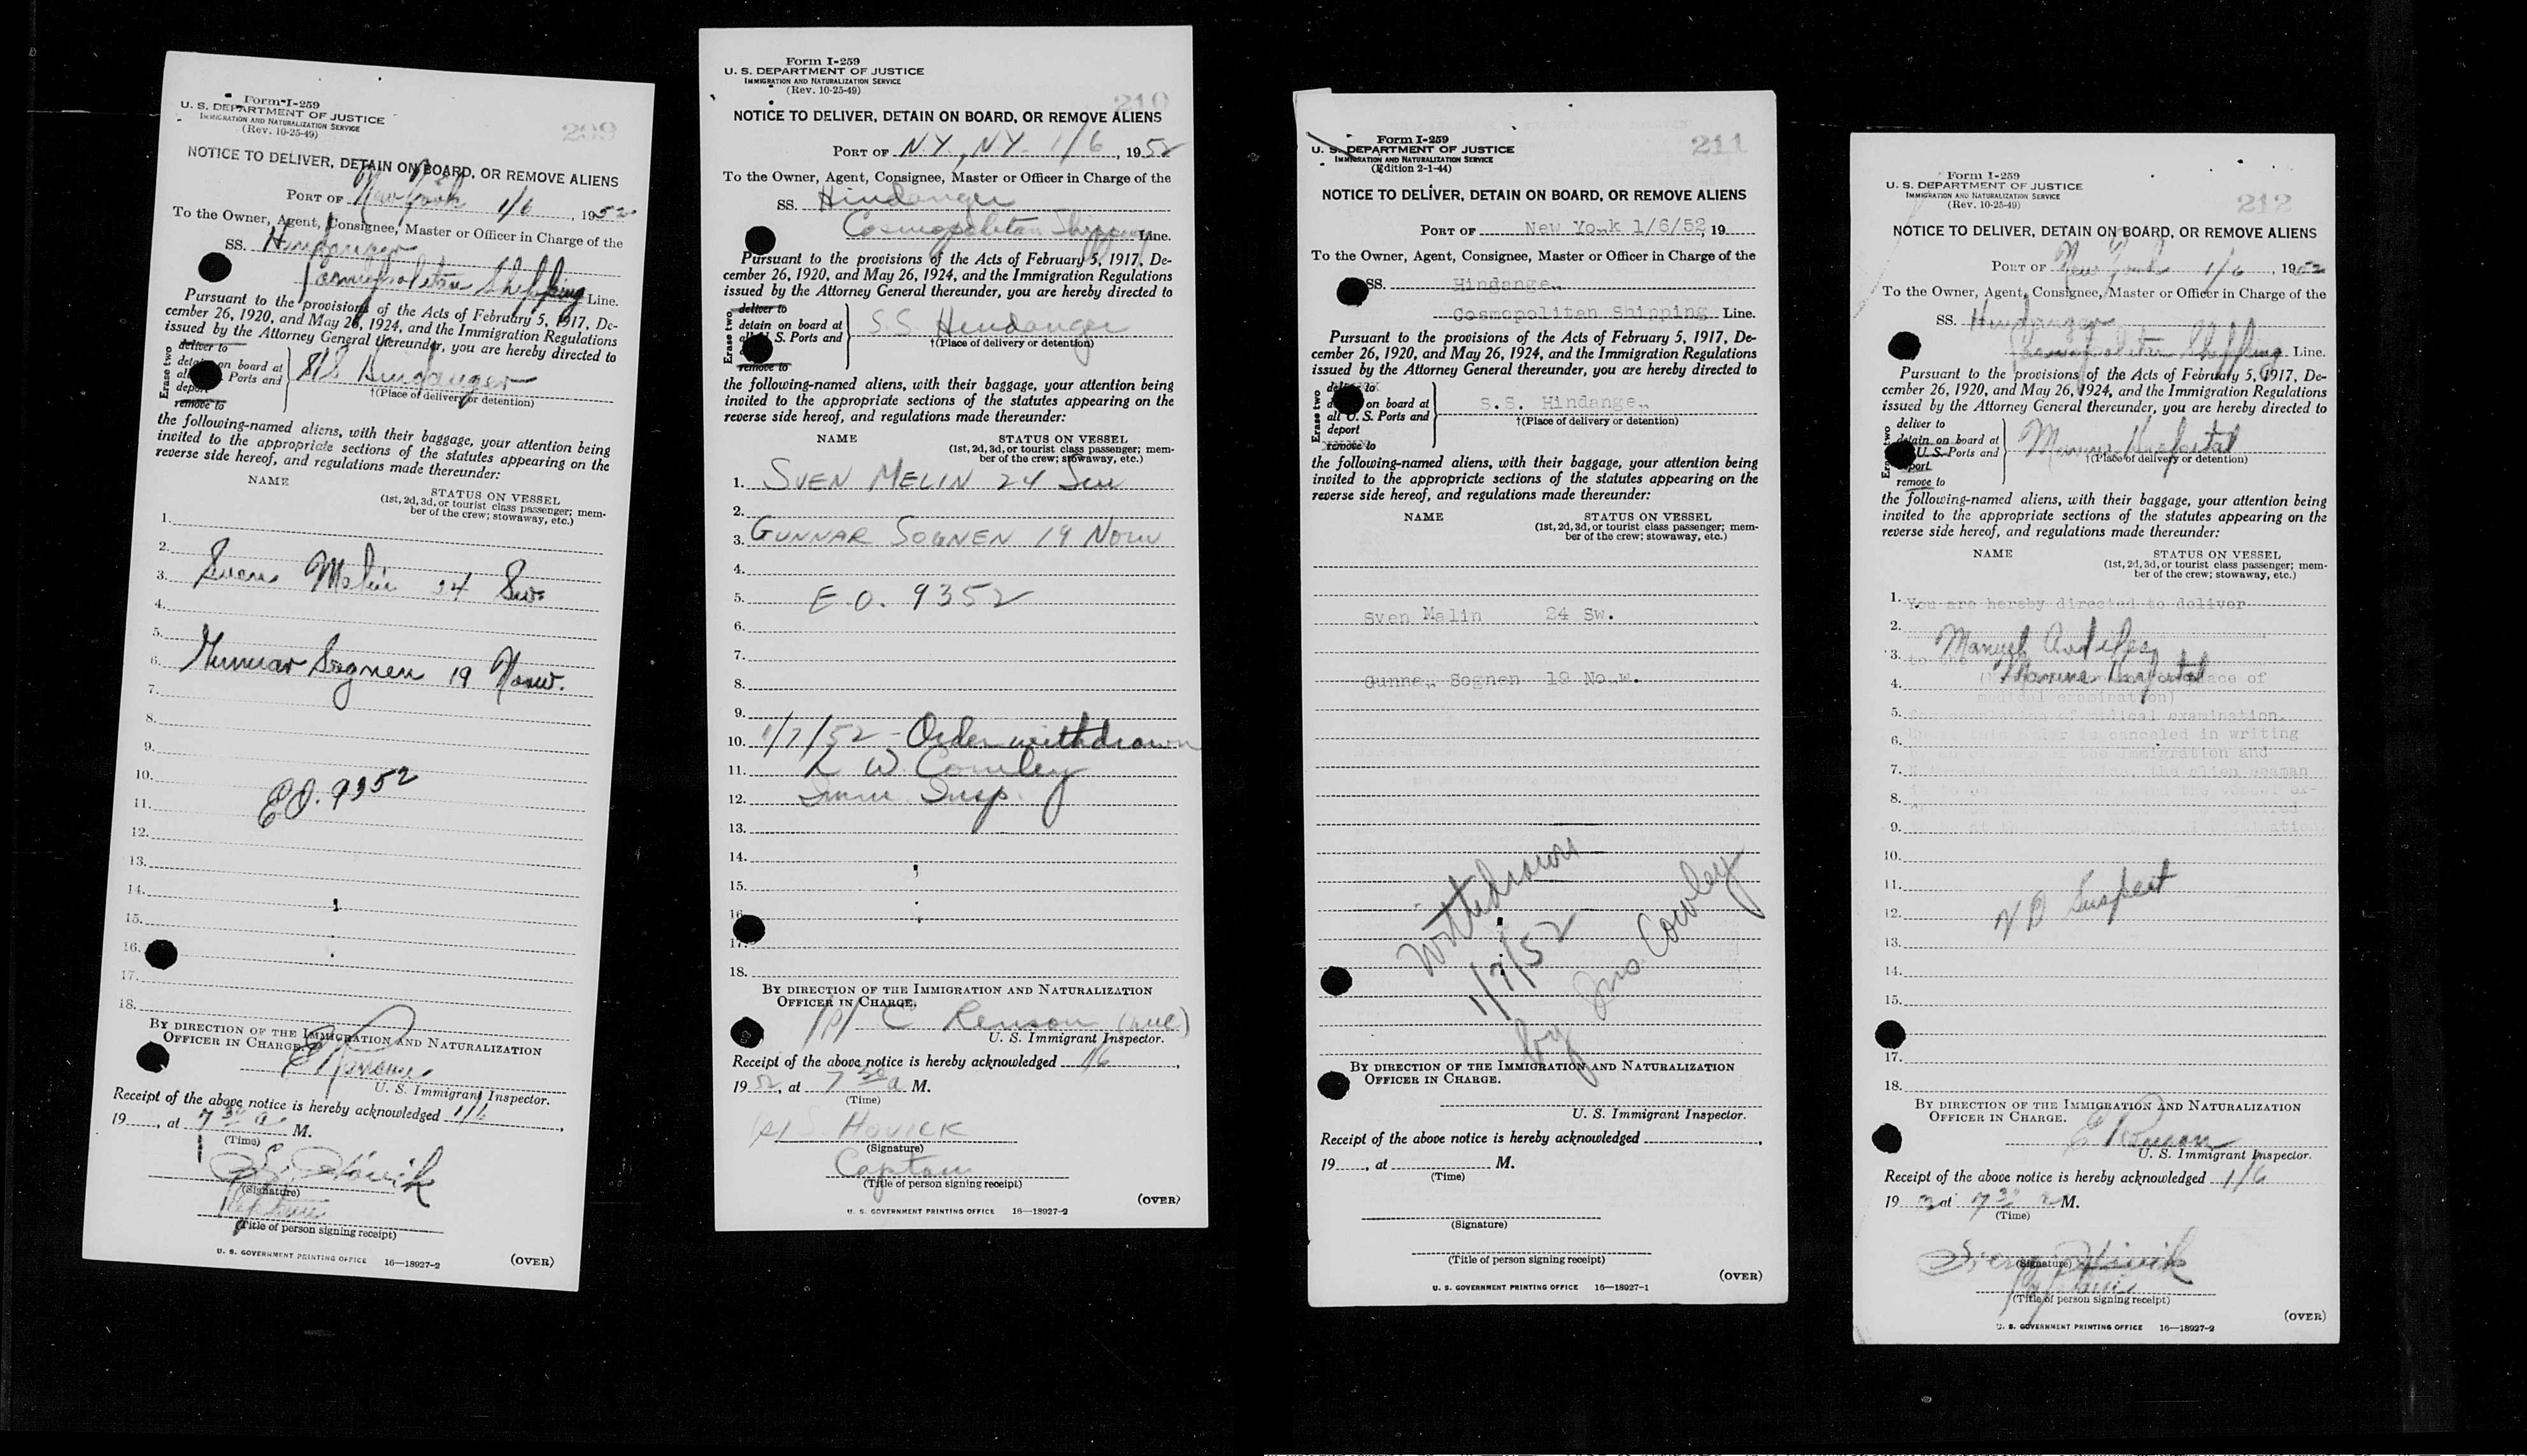 Form I-259
U. S. DEPARTMENT OF JUSTICE
IMMIGRATION AND NATURALIZATION SERVICE
(Rev. 10-25-49)
209
NOTICE TO DELIVER, DETAIN ON BOARD, OR REMOVE ALIENS
PORT OF New York 1/6, 1952
To the Owner, Agent, Consignee, Master or Officer in Charge of the
SS. Hindanger
Cosmopolitan Shipping Line.
Pursuant to the provisions of the Acts of February 5, 1917, De-
cember 26, 1920, and May 26, 1924, and the Immigration Regulations
issued by the Attorney General thereunder, you are hereby directed to
Erase two
deliver to
detain on board at
all Ports and
deport
remove to
S/S Hindanger
†(Place of delivery or detention)
the following-named aliens, with their baggage, your attention being
invited to the appropriate sections of the statutes appearing on the
reverse side hereof, and regulations made thereunder:
NAME STATUS ON VESSEL
(1st, 2d, 3d, or tourist class passenger; mem-
ber of the crew; stowaway, etc.)
1.
2.
3. Sven Malin 24 Sw.
4.
5.
6. Gunnar Sognen 19 Norw.
7.
8.
9.
10.
11. EO. 9352
12.
13.
14.
15.
16.
17.
18.
BY DIRECTION OF THE IMMIGRATION AND NATURALIZATION
OFFICER IN CHARGE.
U. S. Immigrant Inspector.
Receipt of the above notice is hereby acknowledged 1/6,
19, at 7 30 a M.
(Time)
S. Hovik
(Signature)
Captain
(Title of person signing receipt)
U. S. GOVERNMENT PRINTING OFFICE 16—18927-2
(OVER)
Form I-259
U. S. DEPARTMENT OF JUSTICE
IMMIGRATION AND NATURALIZATION SERVICE
(Rev. 10-25-49)
210
NOTICE TO DELIVER, DETAIN ON BOARD, OR REMOVE ALIENS
PORT OF N.Y., N.Y. 1/6, 1952
To the Owner, Agent, Consignee, Master or Officer in Charge of the
SS. Hindanger
Cosmopolitan Shipping Line.
Pursuant to the provisions of the Acts of February 5, 1917, De-
cember 26, 1920, and May 26, 1924, and the Immigration Regulations
issued by the Attorney General thereunder, you are hereby directed to
Erase two
deliver to
detain on board at
all S. Ports and
remove to
S.S. Hindanger
†(Place of delivery or detention)
the following-named aliens, with their baggage, your attention being
invited to the appropriate sections of the statutes appearing on the
reverse side hereof, and regulations made thereunder:
NAME STATUS ON VESSEL
(1st, 2d, 3d, or tourist class passenger; mem-
ber of the crew; stowaway, etc.)
1. SVEN MELIN 24 Sw
2.
3. GUNNAR SOGNEN 19 Norw
4.
5. E.O. 9352
6.
7.
8.
9.
10. 1/7/52 - Order withdrawn
11. W. Cowley
12. Imm. Insp.
13.
14.
15.
16.
17.
18.
BY DIRECTION OF THE IMMIGRATION AND NATURALIZATION
OFFICER IN CHARGE.
E Renson
U. S. Immigrant Inspector.
Receipt of the above notice is hereby acknowledged 1/6,
1952, at 7 30 a M.
(Time)
S. HOVICK
(Signature)
Captain
(Title of person signing receipt)
(OVER)
U. S. GOVERNMENT PRINTING OFFICE 16—18927-2
Form I-259
U. S. DEPARTMENT OF JUSTICE
IMMIGRATION AND NATURALIZATION SERVICE
(Edition 2-1-44)
211
NOTICE TO DELIVER, DETAIN ON BOARD, OR REMOVE ALIENS
PORT OF New York 1/6/52, 19
To the Owner, Agent, Consignee, Master or Officer in Charge of the
SS. Hindanger
Cosmopolitan Shipping Line.
Pursuant to the provisions of the Acts of February 5, 1917, De-
cember 26, 1920, and May 26, 1924, and the Immigration Regulations
issued by the Attorney General thereunder, you are hereby directed to
Erase two
deliver to
on board at
all U. S. Ports and
deport
remove to
S.S. Hindanger
†(Place of delivery or detention)
the following-named aliens, with their baggage, your attention being
invited to the appropriate sections of the statutes appearing on the
reverse side hereof, and regulations made thereunder:
NAME STATUS ON VESSEL
(1st, 2d, 3d, or tourist class passenger; mem-
ber of the crew; stowaway, etc.)
Sven Malin 24 Sw.
Gunnar Sognen 19 Norw.
Withdrawn
1/7/52
by Jno Cowley
BY DIRECTION OF THE IMMIGRATION AND NATURALIZATION
OFFICER IN CHARGE.
U. S. Immigrant Inspector.
Receipt of the above notice is hereby acknowledged,
19, at M.
(Time)
(Signature)
(Title of person signing receipt)
(OVER)
U. S. GOVERNMENT PRINTING OFFICE 16—18927-1
Form I-259
U. S. DEPARTMENT OF JUSTICE
IMMIGRATION AND NATURALIZATION SERVICE
(Rev. 10-25-49)
212
NOTICE TO DELIVER, DETAIN ON BOARD, OR REMOVE ALIENS
PORT OF New York 1/6, 1952
To the Owner, Agent, Consignee, Master or Officer in Charge of the
SS. Hindanger
Cosmopolitan Shipping Line.
Pursuant to the provisions of the Acts of February 5, 1917, De-
cember 26, 1920, and May 26, 1924, and the Immigration Regulations
issued by the Attorney General thereunder, you are hereby directed to
deliver to
detain on board at
U. S. Ports and
remove to
Marine Hospital
†(Place of delivery or detention)
the following-named aliens, with their baggage, your attention being
invited to the appropriate sections of the statutes appearing on the
reverse side hereof, and regulations made thereunder:
NAME STATUS ON VESSEL
(1st, 2d, 3d, or tourist class passenger; mem-
ber of the crew; stowaway, etc.)
1. You are hereby directed to deliver
2.
3. Manuel
to the Marine Hospital
4. place of
medical examination)
5. medical examination.
6. is canceled in writing
Immigration and
7. the alien seaman
8.
9.
10.
11.
12. V D Suspect
13.
14.
15.
17.
18.
BY DIRECTION OF THE IMMIGRATION AND NATURALIZATION
OFFICER IN CHARGE.
U. S. Immigrant Inspector.
Receipt of the above notice is hereby acknowledged 1/6
19 at 7 30 a M.
(Time)
Hovik
(Signature)
Captain
(Title of person signing receipt)
(OVER)
U. S. GOVERNMENT PRINTING OFFICE 16—18927-2